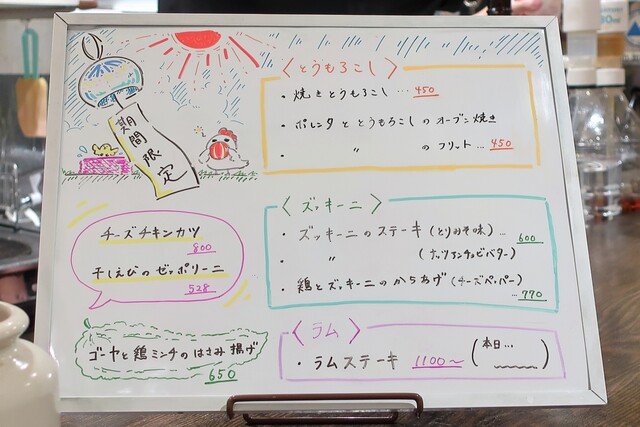 期間限定
〈とうもろこし〉
・焼きとうもろこし … 450
・ポレンタととうもろこしのオーブン焼き
・ 〃 のフリット … 450
チーズチキンカツ
800
干しえびのゼッポリーニ
528
〈ズッキーニ〉
・ズッキーニのステーキ (とりみそ味) … 600
・ 〃 (ナッツアンチョビバター)
・鶏とズッキーニのからあげ (チーズペッパー)
… 770
ゴーヤと鶏ミンチのはさみ揚げ
650
〈ラム〉
・ラムステーキ 1100〜 (本日…